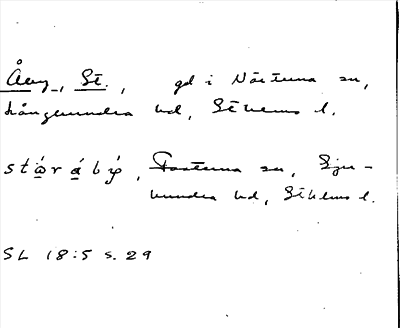 Åby, St., gd i Närtuna sn,
Långhundra hd, Sthlms l.
stǿrábý, Fasterna sn, Sju-
hundra hd, Sthlms l.
SL 18:5 s. 29